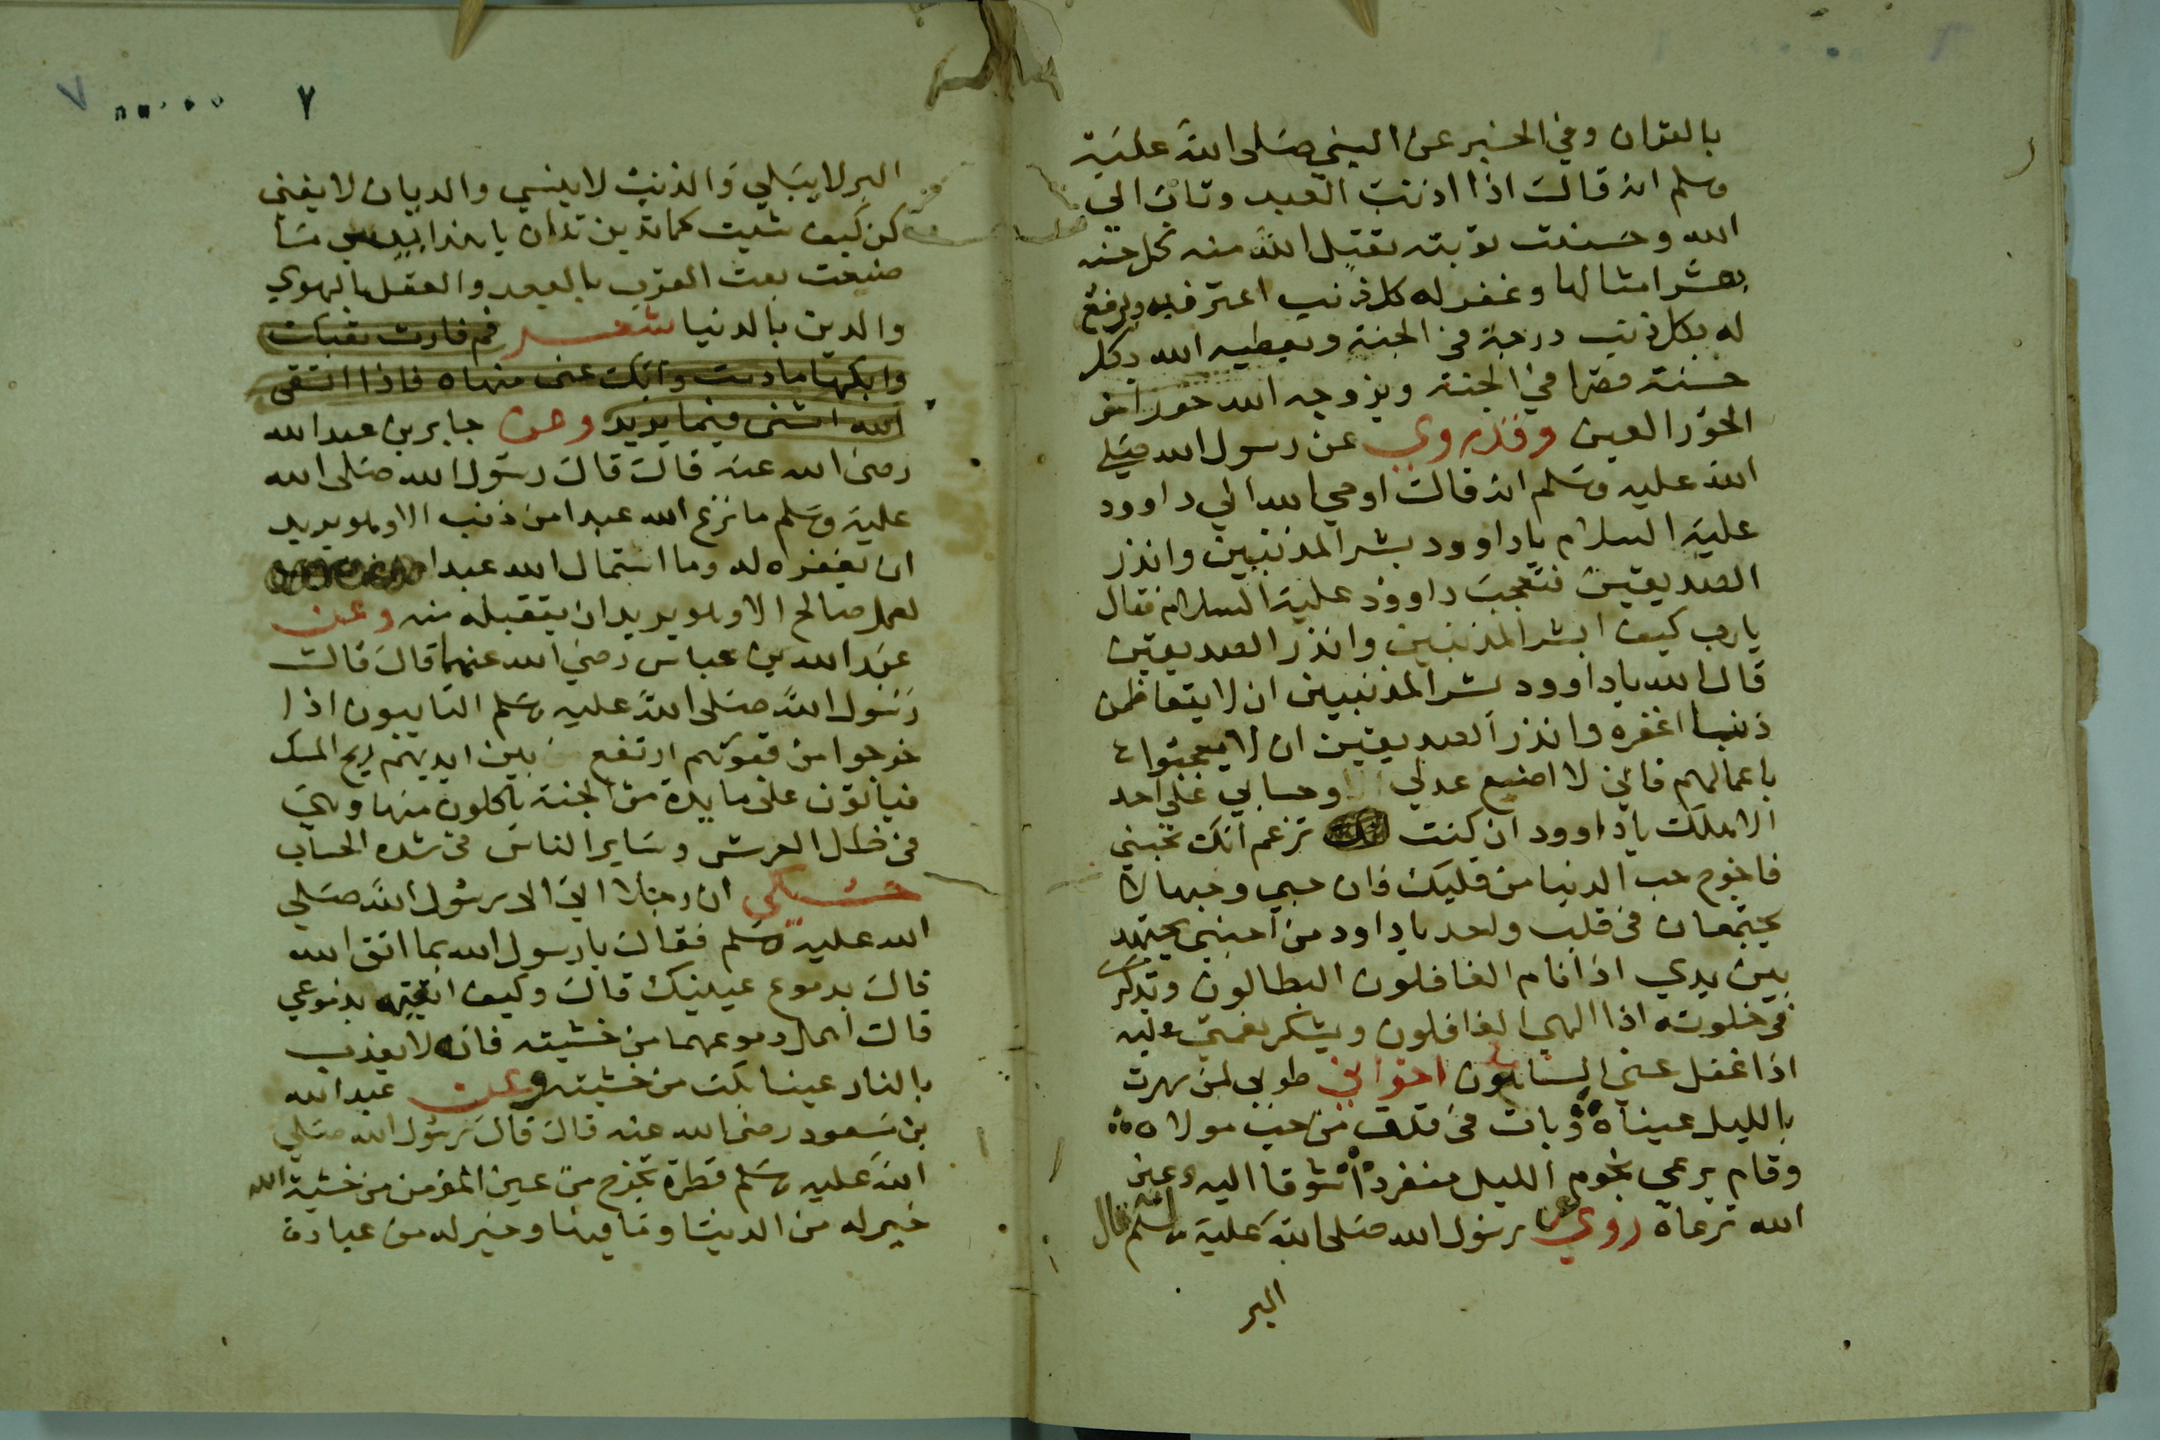 بالقران وفي الخبر عن النبي صلى الله عليه
وسلم انه قال اذا اذنب العبد وتاب الى
الله وحسنت توبته تقبل الله منه كل حسنة
بعشر امثالها وغفر له كل ذنب اعترف به ويرفع
له بكل ذنب درجة في الجنة ويعطيه الله بكل
حسنة قصرا في الجنة ويزوجه الله حورا من
الحور العين وقد روي عن رسول الله صلى
الله عليه وسلم انه قال اوحي الله الي داوود
عليه السلام ياداوود بشر المذنبين وانذر
الصديقين فتعجب داوود عليه السلام فقال
يارب كيف ابشر المذنبين وانذر الصديقين
قال الله ياداوود بشر المذنبين ان لا يتعاظمن
ذنبا اغفره وانذر الصديقين ان لا يعجبوا
باعمالهم فاني لا اضيع عدلي وحسابي على احد
الا هلك ياداوود ان كنت تزعم انك تحبني
فاخرج حب الدنيا من قلبك فان حبي وحبها لا
يجتمعان في قلب واحد ياداود من احبني يجتهد
بين يدي اذا نام الغافلون البطالون وتذكر
في خلوته اذا الهي الغافلون ويشكر نعمتي عليه
اذا غفل عني الساهون اخواني طوبي لمن سهرت
بالليل عيناه وبات في قلق من حب مولاه
وقام يرعي نجوم الليل منفردا شوقا اليه وعين
الله ترعاه روي عن رسول الله صلى الله عليه وسلم انه قال
البر
٧ ٧
البر لا يبلي والذنب لا ينسي والديان لا يفني
كن كيف شيت كما تدين تدان ما
صنعت بعت القرب بالبعد والعقل بالهوي
والدين بالدنيا شعر
وعن جابر بن عبد الله
رضى الله عنه قال قال رسول الله صلى الله
عليه وسلم ما نزع الله عبدا من ذنب الا وهو يريد
ان يغفره له وما استمال الله عبدا
لعمل صالح الا وهو يريد ان يتقبله منه وعن
عبد الله بن عباس رضي الله عنهما قال قال
رسول الله صلى الله عليه وسلم التايبون اذا
خرجوا من قبورهم ارتفع بين ايديهم ريح المسك
فياتون على مايدة من الجنة ياكلون منها وهي
في ظل العرش وساير الناس في شده الحساب
حكي ان رجلا اتى الى رسول الله صلى
الله عليه وسلم فقال يارسول الله بما اتقى الله
قال بدموع عينيك قال وكيف اتقيه بدموعي
قال اهمل دموعهما من خشيته فانه لا يعذب
بالنار عينا بكت من خشيته وعن عبد الله
بن مسعود رضى الله عنه قال قال رسول الله صلى
الله عليه وسلم قطرة تخرج من عين المؤمن من خشية الله
خير له من الدنيا وما فيها وخير له من عبادة